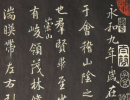 永和九年歲在
于會稽山陰之
也羣賢畢至
有崇山峻領茂林脩
湍暎帶左右引